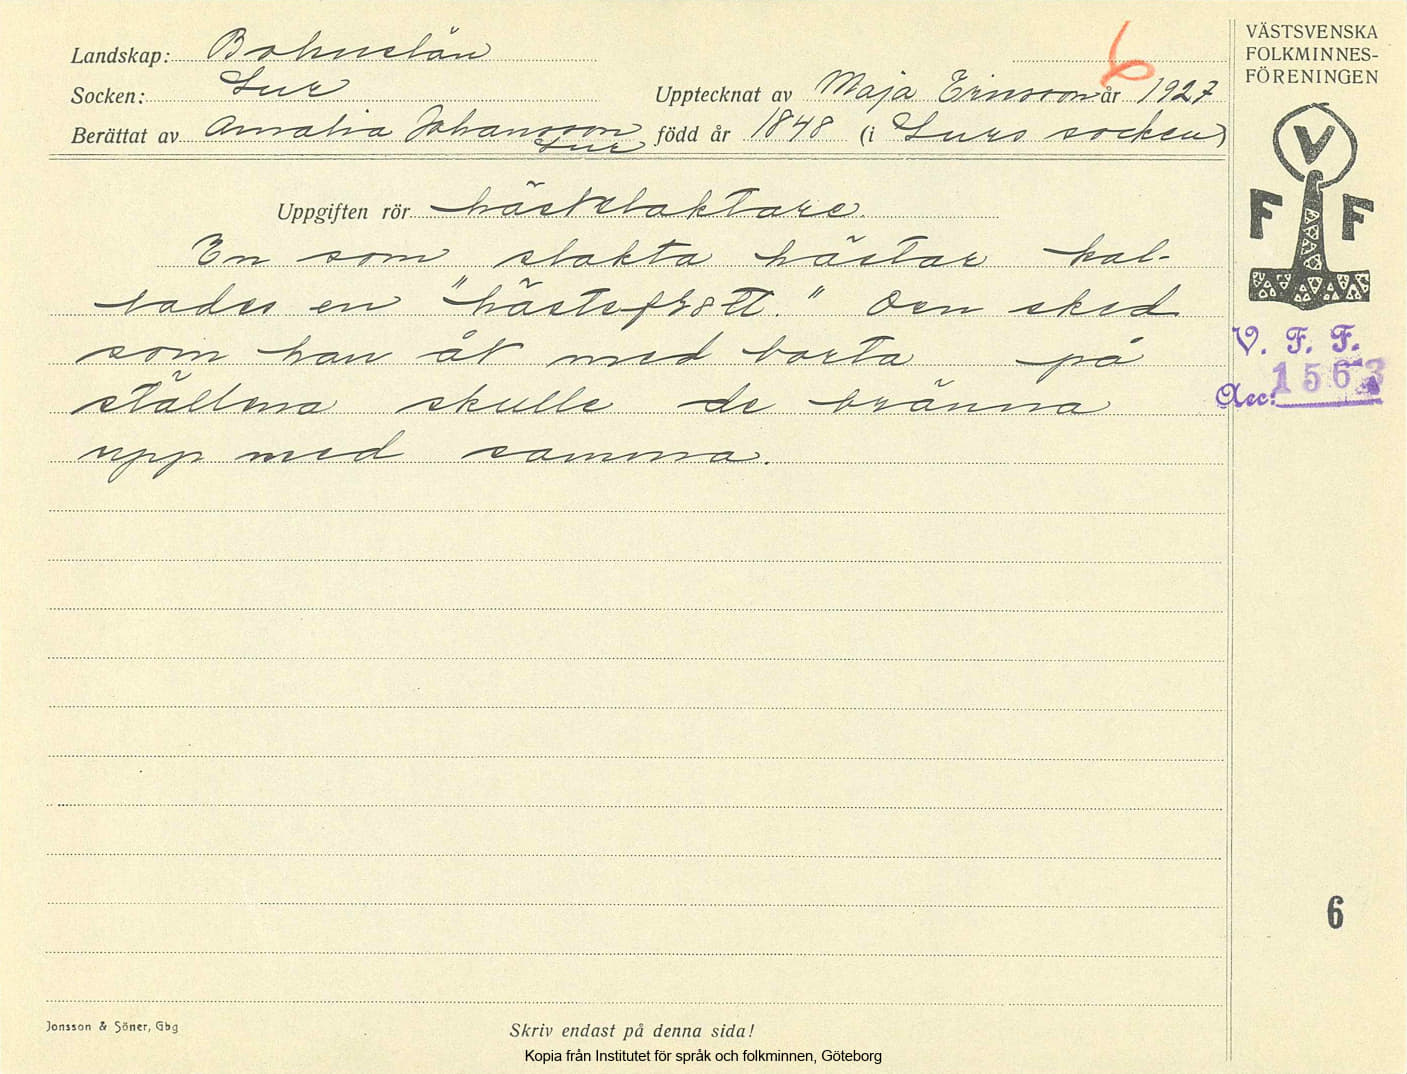 6
VÄSTSVENSKA
FOLKMINNES-
FÖRENINGEN
Landskap: Bohuslän
Socken: Lur
Upptecknat av Maja Ericsson år 1927
Berättat av Amalia Johansson Lur född år 1848 (i Lurs socken)
V
F F
Uppgiften rör hästslaktare.
En som slakta hästar kal-
lades en "hästeflått." Den sked
som han åt med borta på
ställena skulle de bränna
upp med samma.
V. F. F.
Acc: 1563
6
Jonsson & Söner, Gbg
Skriv endast på denna sida!
Kopia från Institutet för språk och folkminnen, Göteborg